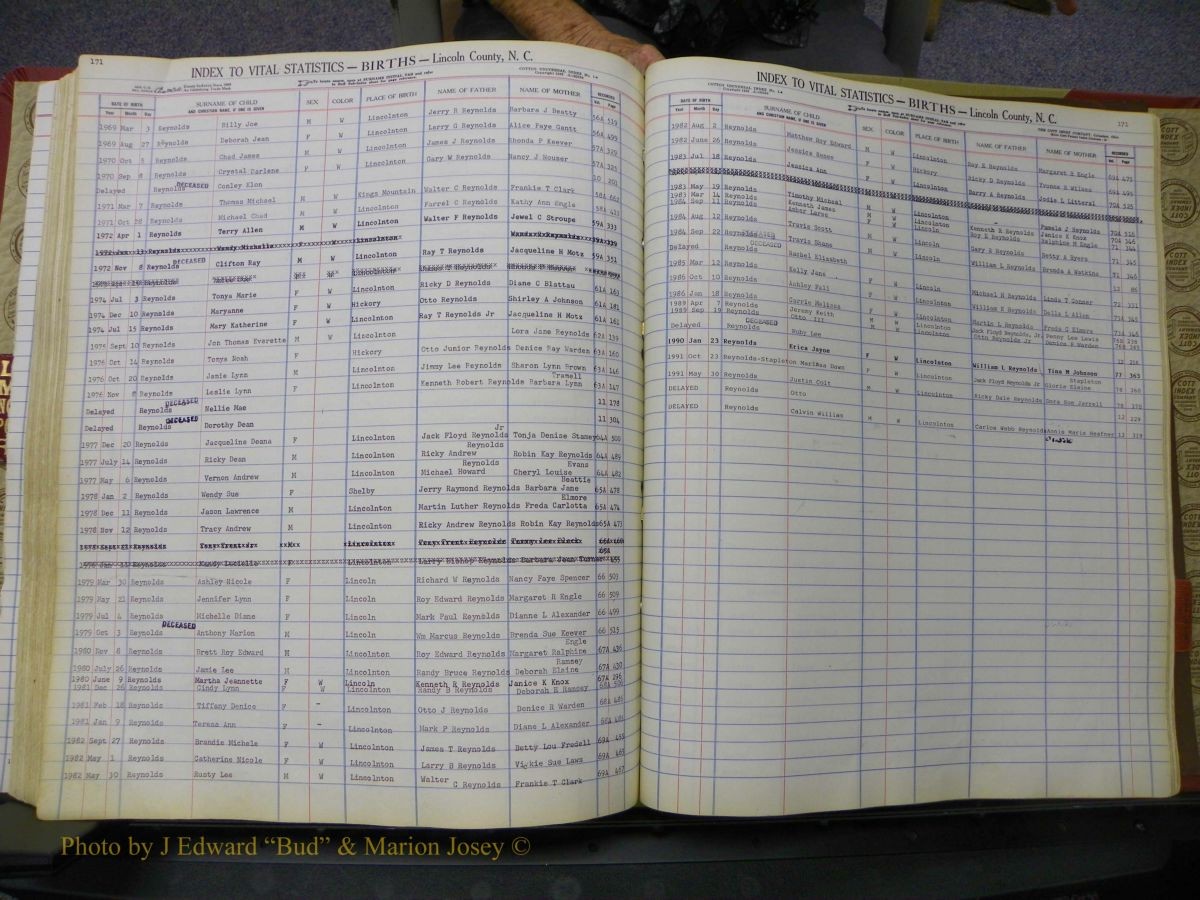 171
INDEX TO VITAL STATISTICS — BIRTHS — Lincoln County, N. C.
DATE OF BIRTH
Year Month Day
SURNAME OF CHILD
AND CHRISTIAN NAME, IF ONE IS GIVEN
SEX COLOR PLACE OF BIRTH NAME OF FATHER NAME OF MOTHER RECORDED
Vol. Page
1969 Mar 3 Reynolds Billy Joe M W Lincolnton Jerry R Reynolds Barbara J Beatty 56A 519
1969 Aug 27 Reynolds Deborah Jean F W Lincolnton Larry G Reynolds Alice Faye Gantt 56A 499
1970 Oct 5 Reynolds Chad James M W Lincolnton James J Reynolds Rhonda P Keever 57A 320
1970 Sep 8 Reynolds Crystal Carlene F W Lincolnton Gary W Reynolds Nancy J Houser 57A 325
Delayed Reynolds DECEASED Conley Elon 10
1971 Mar 7 Reynolds Thomas Michael M W Kings Mountain Walter C Reynolds Frankie T Clark 58A
1971 Oct 28 Reynolds Michael Chad M W Lincolnton Farrel C Reynolds Kathy Ann Engle 58A 413
1972 Apr 1 Reynolds Terry Allen M W Lincolnton Walter F Reynolds Jewel C Stroupe 59A 333
1972 Nov 8 Reynolds DECEASED Clifton Ray M W Lincolnton Ray T Reynolds Jacqueline H Motz 59A 351
1974 Jul 3 Reynolds Tonya Marie F W Lincolnton Ricky D Reynolds Diane C Blattau 61A 163
1974 Dec 10 Reynolds Maryanne F W Hickory Otto Reynolds Shirley A Johnson 61A 181
1974 Jul 15 Reynolds Mary Katherine F W Lincolnton Ray T Reynolds Jr Jacqueline H Motz 61A 161
1975 Sept 10 Reynolds Jon Thomas Everette M W Lincolnton Lora Jane Reynolds 62A 139
1976 Oct 14 Reynolds Tonya Noah F Hickory Otto Junior Reynolds Denice Ray Warden 63A 160
1976 Oct 20 Reynolds Jamie Lynn M Lincolnton Jimmy Lee Reynolds Sharon Lynn Brown 63A 146
1976 Nov 8 Reynolds Leslie Lynn F Lincolnton Kenneth Robert Reynolds Barbara Lynn Tramell 63A 147
Delayed Reynolds DECEASED Nellie Mae 11 178
Delayed Reynolds DECEASED Dorothy Dean 11 304
1977 Dec 20 Reynolds Jacqueline Deana F Lincolnton Jack Floyd Reynolds Jr Tonja Denise Stamey 64A 500
1977 July 14 Reynolds Ricky Dean M Lincolnton Ricky Andrew Reynolds Robin Kay Reynolds 64A 489
1977 May 6 Reynolds Vernon Andrew M Lincolnton Michael Howard Reynolds Cheryl Louise Evans 64A 482
1978 Jan 2 Reynolds Wendy Sue F Shelby Jerry Raymond Reynolds Barbara Jane Beattie 65A 478
1978 Dec 11 Reynolds Jason Lawrence M Lincolnton Martin Luther Reynolds Freda Carlotta Elmore 65A 474
1978 Nov 12 Reynolds Tracy Andrew M Lincolnton Ricky Andrew Reynolds Robin Kay Reynolds 65A 473
1979 Mar 30 Reynolds Ashley Nicole F Lincoln Richard W Reynolds Nancy Faye Spencer 66 503
1979 May 21 Reynolds Jennifer Lynn F Lincoln Roy Edward Reynolds Margaret R Engle 66 509
1979 Jul 4 Reynolds Michelle Diane F Lincoln Mark Paul Reynolds Dianne L Alexander 66 499
1979 Oct 3 Reynolds DECEASED Anthony Marion M Lincoln Wm Marcus Reynolds Brenda Sue Keever 66 515
1980 Nov 8 Reynolds Brett Roy Edward M Lincoln Roy Edward Reynolds Margaret Ralphine Engle 67A 436
1980 July 26 Reynolds Jamie Lee M Lincoln Randy Bruce Reynolds Deborah Elaine Ramsey 67A 430
1980 June 9 Reynolds Martha Jeannette F W Lincoln Kenneth R Reynolds Janice K Knox 67A 296
1981 Dec 26 Reynolds Cindy Lynn F W Lincolnton Randy B Reynolds Deborah E Ramsey 68A
1981 Feb 18 Reynolds Tiffany Denice F - Lincolnton Otto J Reynolds Denice R Warden 68A 485
1981 Jan 9 Reynolds Teresa Ann F - Lincolnton Mark P Reynolds Diane L Alexander 68A 481
1982 Sept 27 Reynolds Brandie Michele F W Lincolnton James T Reynolds Betty Lou Fredell 69A 455
1982 May 1 Reynolds Catherine Nicole F W Lincolnton Larry B Reynolds Vickie Sue Laws 69A 465
1982 May 30 Reynolds Rusty Lee M W Lincolnton Walter G Reynolds Frankie T Clark 69A 467
171
INDEX TO VITAL STATISTICS — BIRTHS — Lincoln County, N. C.
DATE OF BIRTH
Year Month Day
SURNAME OF CHILD
AND CHRISTIAN NAME, IF ONE IS GIVEN
SEX COLOR PLACE OF BIRTH NAME OF FATHER NAME OF MOTHER RECORDED
Vol. Page
1982 Aug 2 Reynolds Matthew Roy Edward M W Lincolnton Roy E Reynolds Margaret R Engle 69A 475
1982 June 26 Reynolds Jessica Renee F W Hickory Ricky D Reynolds Yvonne R Wilson 69A 495
1983 Jul 18 Reynolds Jessica Ann F W Lincolnton Barry A Reynolds Jodie L Litteral 70A 525
1983 May 19 Reynolds Timothy Michael M W Lincolnton Pamela J Reynolds 70A 516
1983 Mar 14 Reynolds Kenneth James M W Lincolnton Kenneth R Reynolds Janice K Knox 70A 546
1984 Sep 11 Reynolds Amber Larue F W Lincoln Roy E Reynolds Ralphine M Engle 71 344
1984 Aug 12 Reynolds Travis Scott M W Lincoln Gary A Reynolds Betty A Byers 71 345
1984 Sep 22 Reynolds DECEASED Travis Shane M W Lincoln William L Reynolds Brenda A Watkins 71 346
Delayed Reynolds DECEASED Rachel Elizabeth 12 86
1985 Mar 12 Reynolds Kelly Jane F W Lincoln Michael H Reynolds Linda T Conner 72 331
1986 Oct 10 Reynolds Ashley Fall F W Lincolnton William K Reynolds Della L Allen 73A 345
1986 Jan 18 Reynolds Carrie Melissa F W Lincolnton Martin L Reynolds Freda C Elmore 73A 345
1989 Apr 7 Reynolds Jeremy Keith M W Lincolnton Jack Floyd Reynolds, Jr. Penny Lee Lewis 76B 238
1989 Sep 19 Reynolds Otto III M W Lincolnton Otto Reynolds Jr Denice R Warden 76B 241
Delayed Reynolds DECEASED Ruby Lee 12 256
1990 Jan 23 Reynolds Erica Jayne F W Lincolnton William L Reynolds Tina M Johnson 77 363
1991 Oct 23 Reynolds-Stapleton Marissa Dawn F W Lincolnton Jack Floyd Reynolds Jr Gloria Elaine Stapleton 78 360
1991 May 30 Reynolds Justin Colt M W Lincolnton Ricky Dale Reynolds Dora Sue Jarrell 78 370
DELAYED Reynolds Otto 12 229
DELAYED Reynolds Calvin William M W Lincolnton Carlos Webb Reynolds Annie Marie Heafner 13 319
Photo by J Edward “Bud” & Marion Josey ©